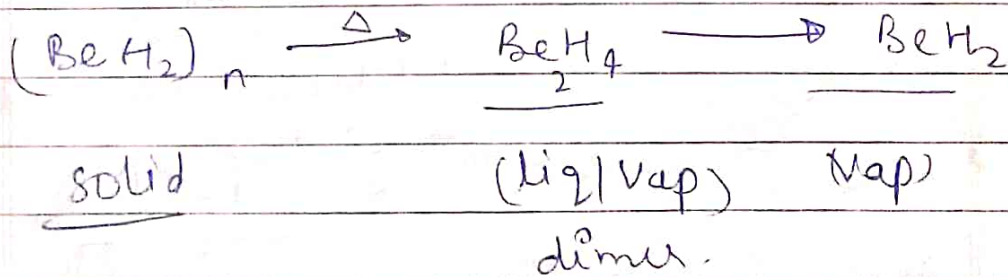 (BeH₂)ₙ —Δ→ Be₂H₄ ⟶ BeH₂
solid (liq/Vap) (Vap)
dimer.